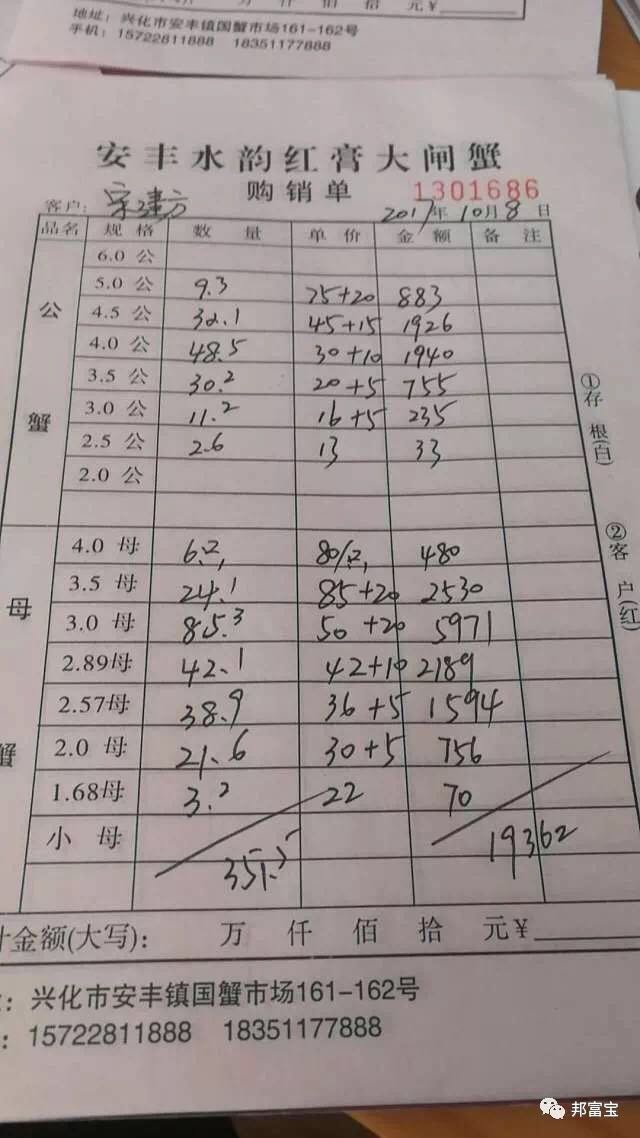 万 佰 拾 元¥
地址：兴化市安丰镇国蟹市场161-162号
手机：15722811888 18351177888
安丰水韵红膏大闸蟹
购销单 1301686
客户：宋建方 2017年10月8日
品名 规格 数量 单价 金额 备注
公蟹
6.0 公
5.0 公 9.3 75+20 883
4.5 公 32.1 45+15 1926
4.0 公 48.5 30+10 1940
3.5 公 30.2 20+5 755
3.0 公 11.2 16+5 235
2.5 公 2.6 13 33
2.0 公
母蟹
4.0 母 6.2 480
3.5 母 24.1 85+20 2530
3.0 母 85.3 50+20 5971
2.89母 42.1 42+10 2189
2.57母 38.9 36+5 1594
2.0 母 21.6 30+5 756
1.68母 3.2 22 70
小 母 19362
①存根(白)
②客户(红)
计金额(大写)： 万 仟 佰 拾 元¥
：兴化市安丰镇国蟹市场161-162号
：15722811888 18351177888
邦富宝